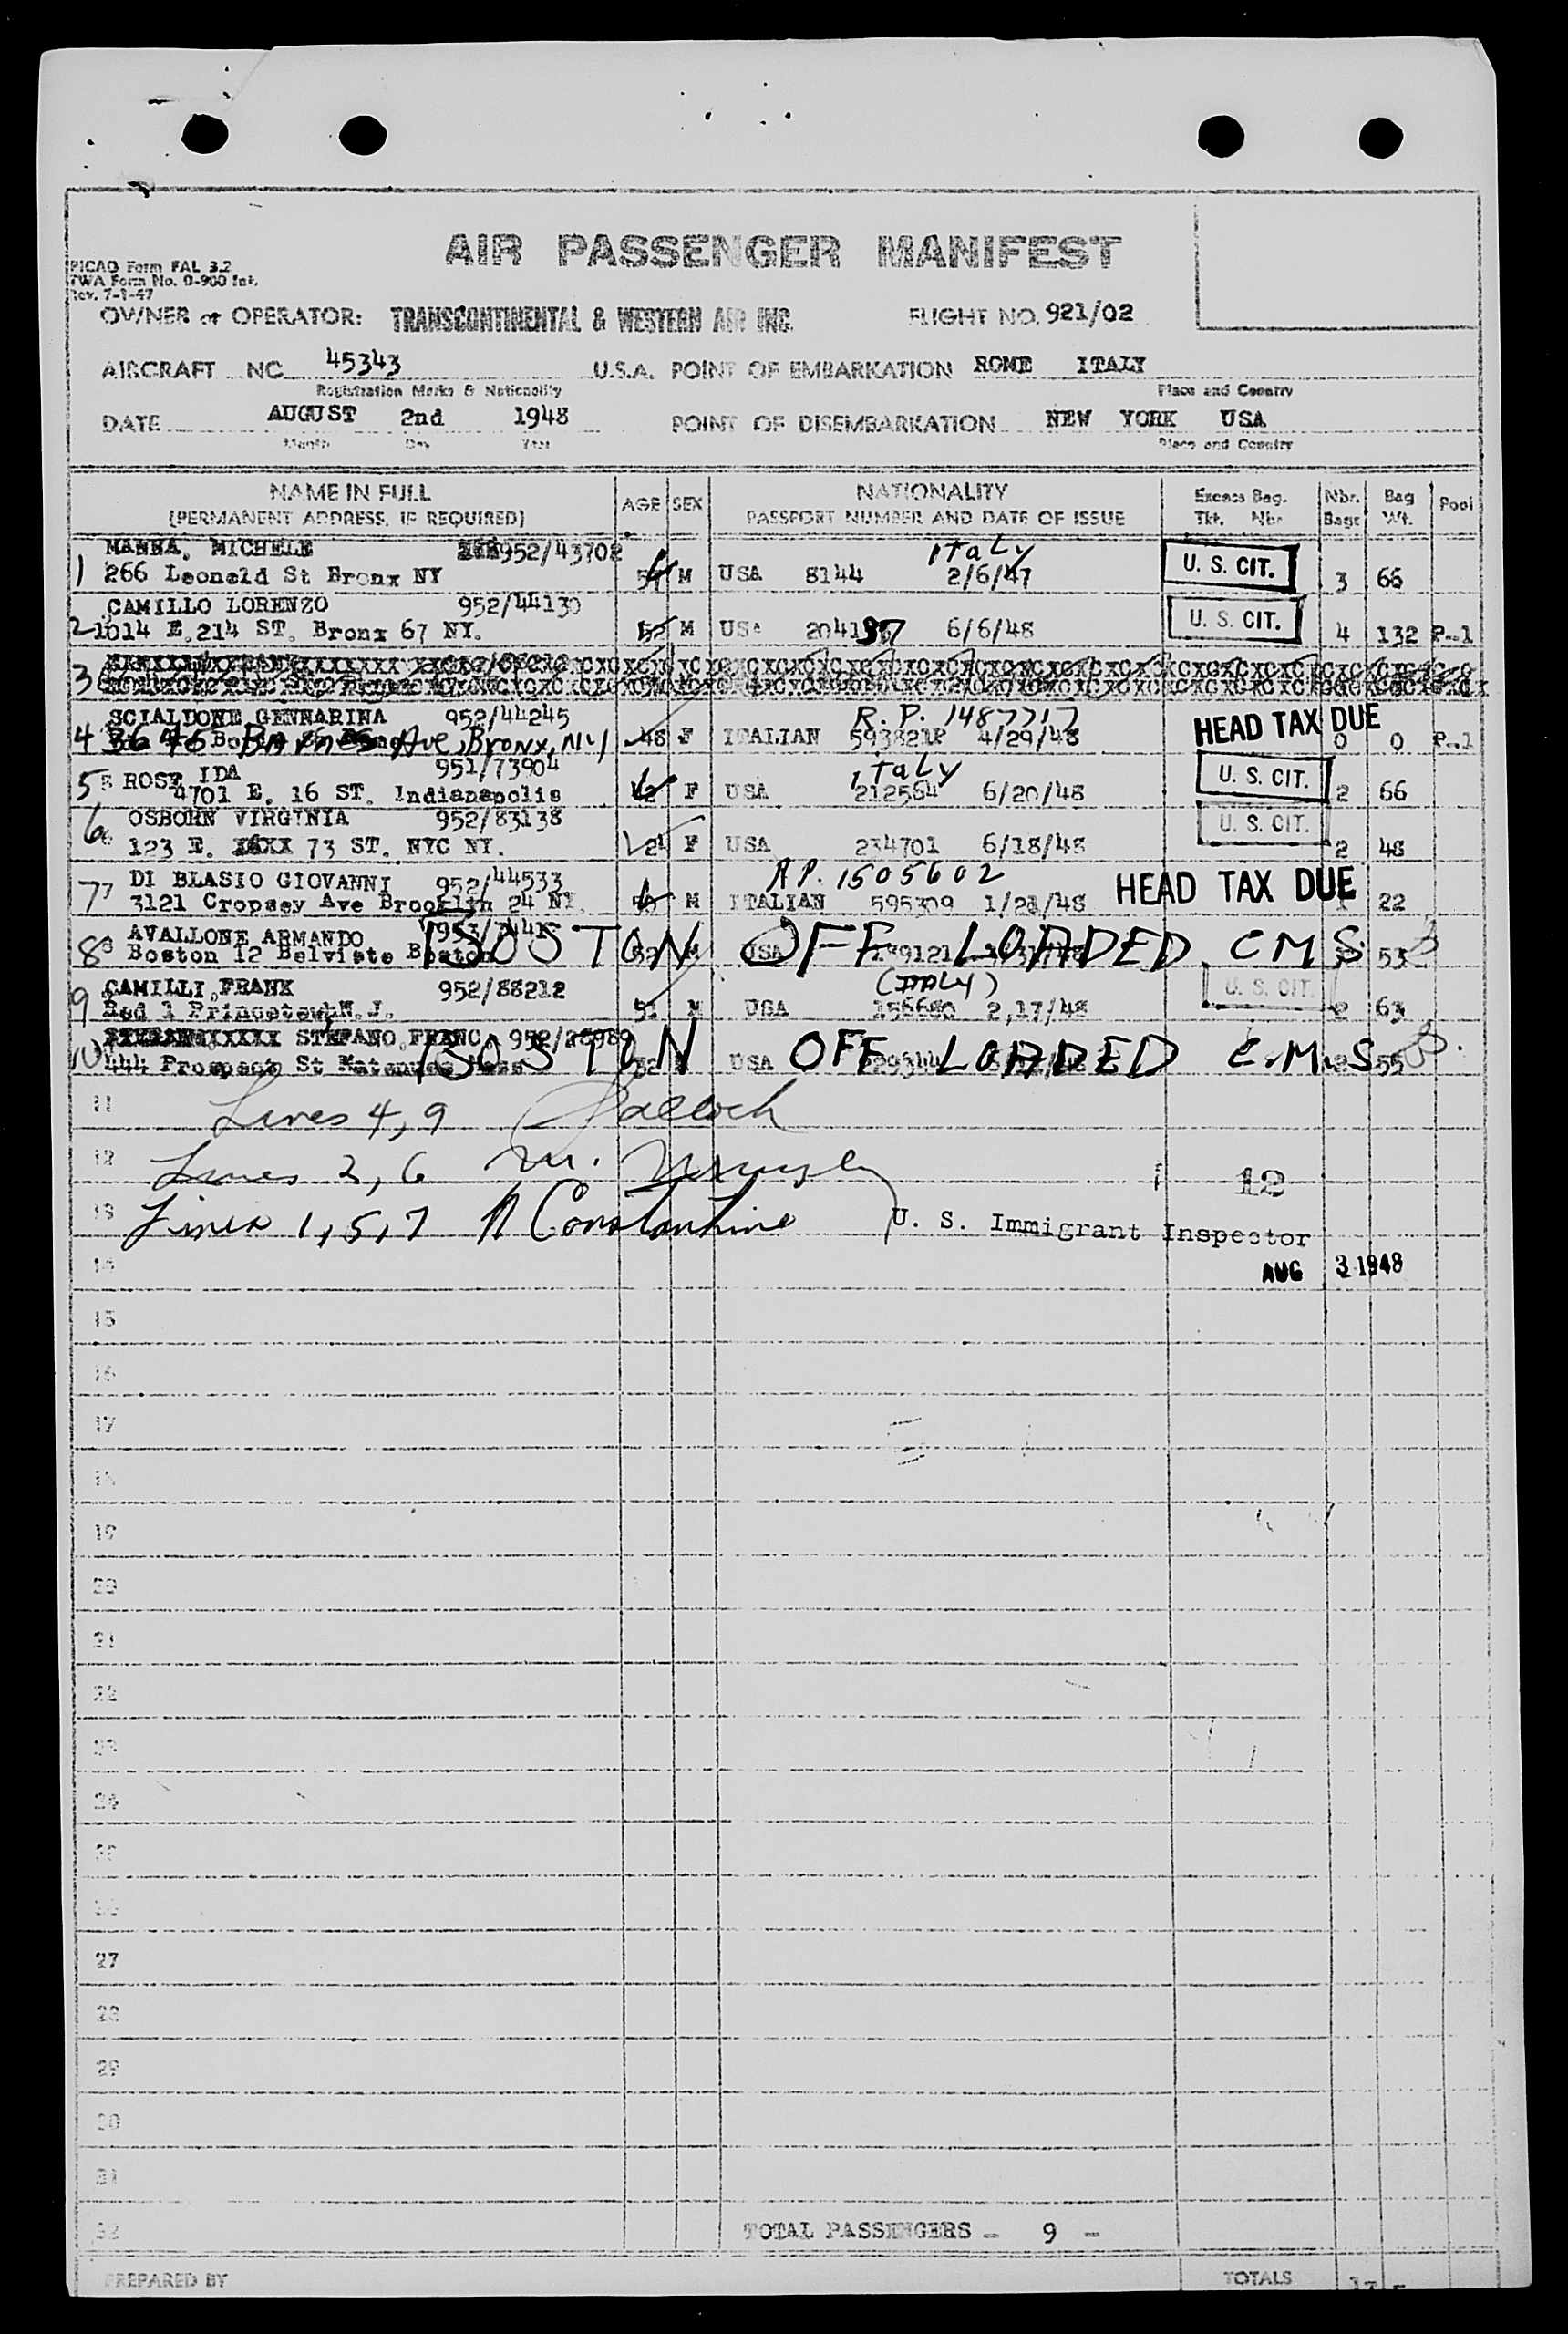 AIR PASSENGER MANIFEST
PICAO Form FAL 3.2
TWA Form No. 0-900 Int.
Rev. 7-1-47
OWNER or OPERATOR: TRANSCONTINENTAL & WESTERN AIR INC. FLIGHT NO. 921/02
AIRCRAFT NC 45343 U.S.A. POINT OF EMBARKATION ROME ITALY
Registration Marks & Nationality Place and Country
DATE AUGUST 2nd 1948 POINT OF DISEMBARKATION NEW YORK USA
Month Day Year Place and Country
NAME IN FULL AGE SEX NATIONALITY Excess Bag. Nbr. Bag Pool
(PERMANENT ADDRESS, IF REQUIRED) PASSPORT NUMBER AND DATE OF ISSUE Tkt. Nbr. Bags Wt.
MANNA, MICHELE 952/43702 Italy U. S. CIT.
1 266 Leoneld St Bronx NY M USA 8144 2/6/47 3 66
CAMILLO LORENZO 952/44130 U. S. CIT.
2 1014 E.214 ST. Bronx 67 NY. 52 M USA 204197 6/6/48 4 132 P-1
3
SCIALDONE GENNARINA 952/44245 R. P. 1487717 HEAD TAX DUE
4 3645 Barnes Ave, Bronx, N.Y 48 F ITALIAN 5938218 4/29/48 0 0 P-1
5 ROSE IDA 951/73904 Italy U. S. CIT.
4701 E. 16 ST. Indianapolis F USA 212564 6/20/48 2 66
6 OSBORN VIRGINIA 952/83138 U. S. CIT.
123 E. 73 ST. NYC NY. 24 F USA 234701 6/18/48 2 48
7 DI BLASIO GIOVANNI 952/44533 R.P. 1505602 HEAD TAX DUE
3121 Cropsey Ave Brooklyn 24 NY. M ITALIAN 595309 1/28/48 22
8 AVALLONE ARMANDO BOSTON OFF LOADED C M S
Boston 12 Belviste Boston 52 M USA 53
9 CAMILLI FRANK 952/88212 (ITALY) U. S. CIT.
Rsd 1 Princetown N.J. 51 M USA 156680 2,17/48 2 63
10 STEFANO FRANC. 952/28989 BOSTON OFF LOADED C.M.S.
444 Prospect St 52 USA 55
11 Lines 4, 9
12 Lines 2, 6 M. 12
13 Lines 1, 5, 7 A Constantine U. S. Immigrant Inspector
14 AUG 3 1948
15
16
17
18
19
20
21
22
23
24
27
28
29
30
31
32 TOTAL PASSENGERS - 9 -
PREPARED BY TOTALS